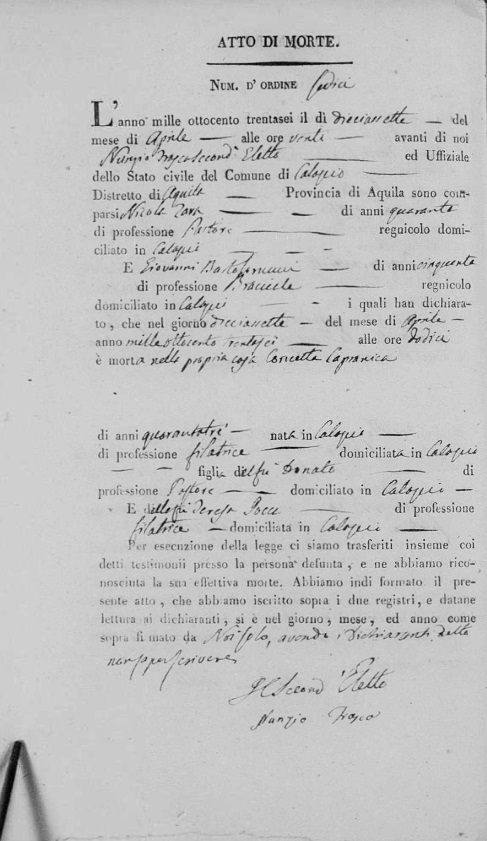 ATTO DI MORTE.
NUM. D' ORDINE Sedici
L'anno mille ottocento trentasei il dì diecissette — del
mese di Aprile — alle ore venti — avanti di noi
Nunzio Frasca Second' Eletto ed Uffiziale
dello Stato civile del Comune di Calascio —
Distretto di Aquila — Provincia di Aquila sono com-
parsi Nicola — di anni quaranta
di professione Pastore — regnicolo domi-
ciliato in Calascio — —
E Giovanni Bartolomucci — di anni cinquanta
di professione Bracciale — regnicolo
domiciliato in Calascio — - i quali han dichiara-
to, che nel giorno diecissette — del mese di Aprile —
anno mille ottocento trentasei — alle ore dodici
è morta nella propria casa Concetta Capranica
di anni quarantatrè — nata in Calascio —
di professione filatrice — domiciliata in Calascio
— — figlia del fù Donato — di
professione Pastore — domiciliato in Calascio —
E della fù Teresa — di professione
filatrice — domiciliata in Calascio —
Per esecuzione della legge ci siamo trasferiti insieme coi
detti testimonii presso la persona defunta, e ne abbiamo rico-
nosciuta la sua effettiva morte. Abbiamo indi formato il pre-
sente atto, che abbiamo iscritto sopra i due registri, e datane
lettura ai dichiaranti, si è nel giorno, mese, ed anno come
sopra firmato da Noi solo, avendo i Dichiaranti detto
non saper scrivere
Il Second' Eletto
Nunzio Frasca